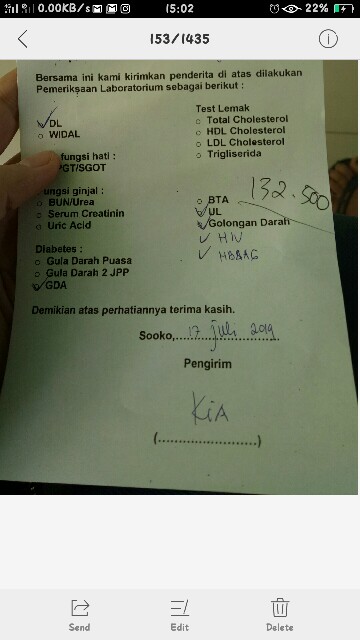 0.00KB/s
15:02
22%
153/1435
Bersama ini kami kirimkan penderita di atas dilakukan
Pemeriksaan Laboratorium sebagai berikut :
DL
WIDAL
fungsi hati :
PGT/SGOT
ungsi ginjal :
BUN/Urea
Serum Creatinin
Uric Acid
Diabetes :
Gula Darah Puasa
Gula Darah 2 JPP
GDA
Test Lemak
Total Cholesterol
HDL Cholesterol
LDL Cholesterol
Trigliserida
BTA
UL
Golongan Darah
HIV
HBSAG
132.500
Demikian atas perhatiannya terima kasih.
Sooko, 17 juli 2019
Pengirim
KiA
(........................)
Send
Edit
Delete